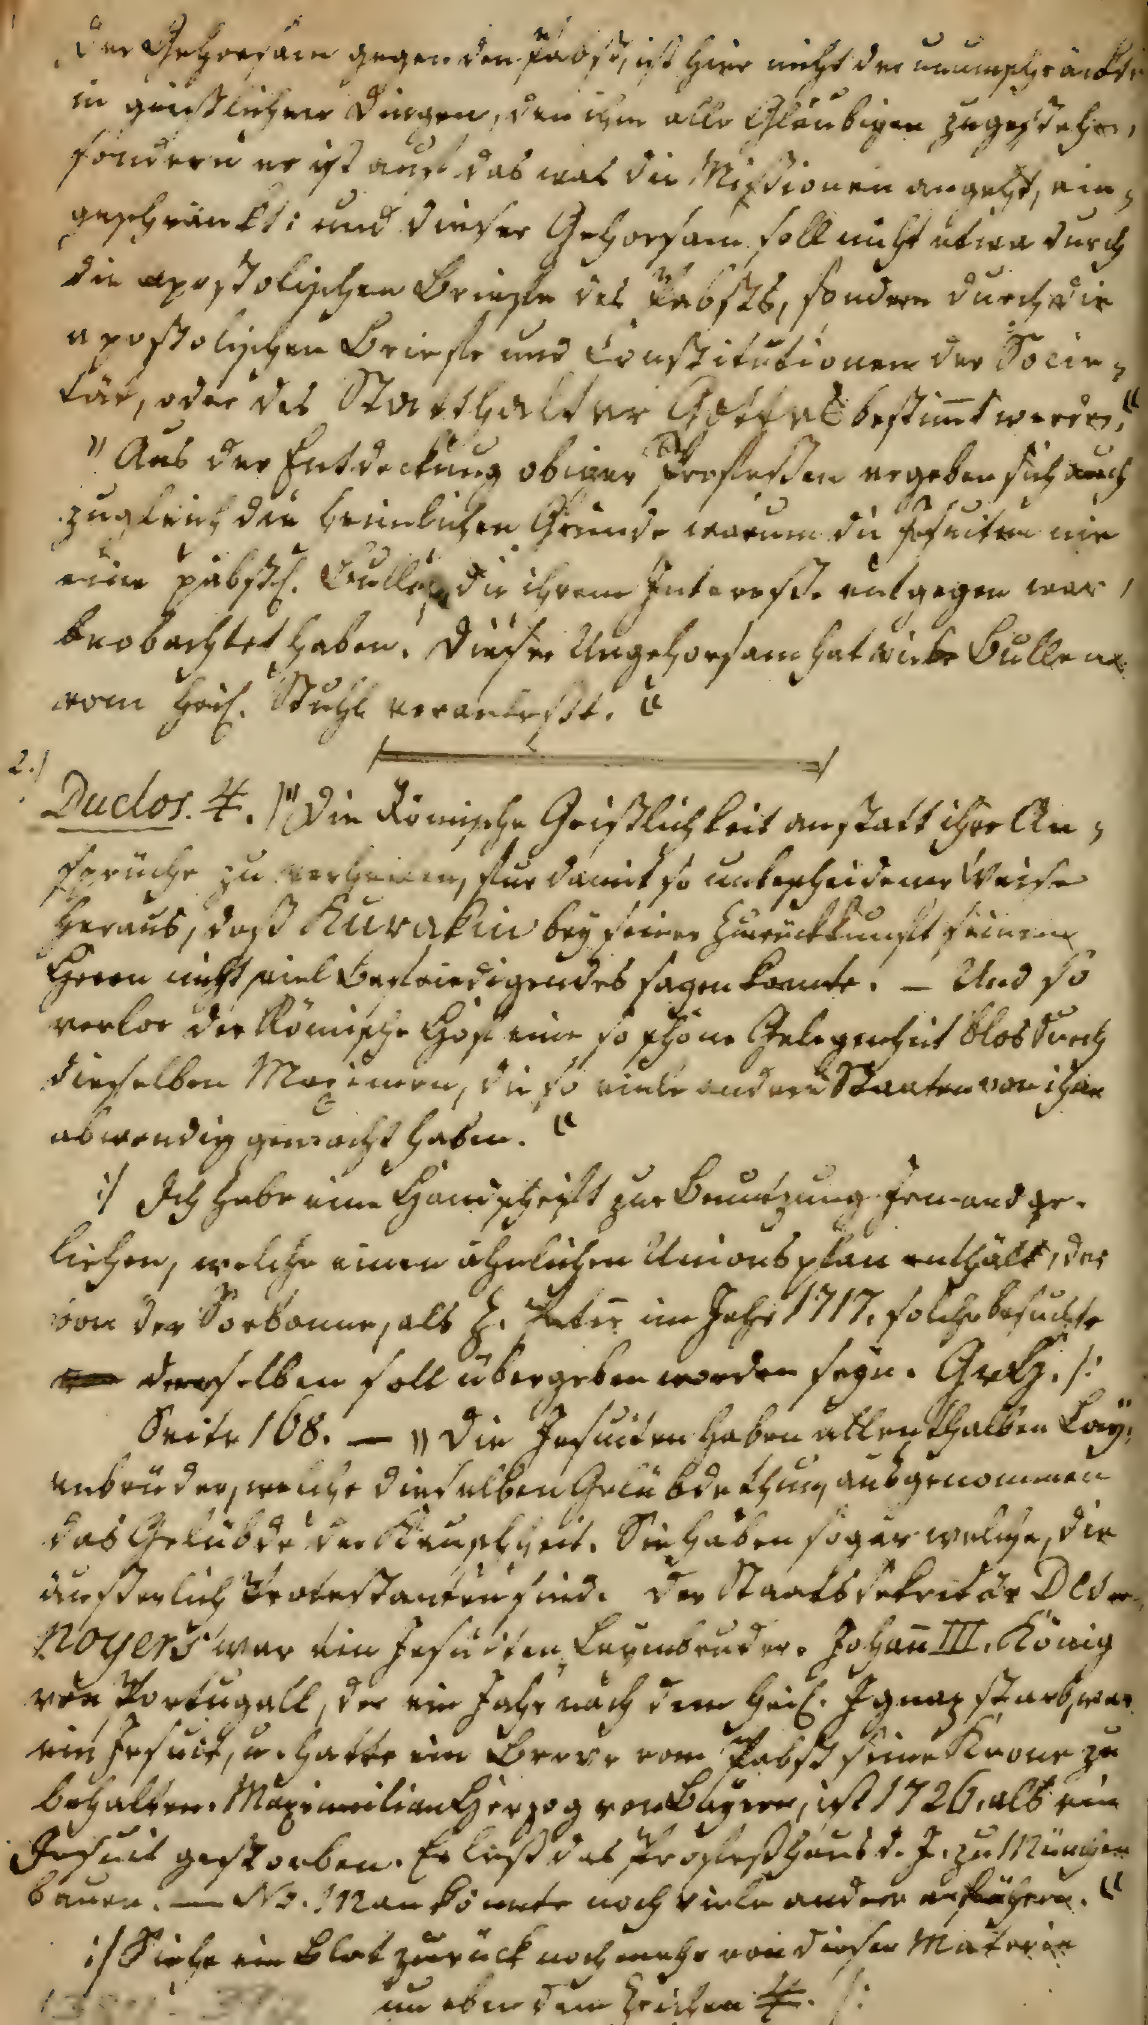 Der Gehorsam gegen den Pabst, ist hier nicht der unumschränkte
in geistlichen Dingen, den ihm alle Gläubigen zugestehen,
sondern er ist auf das was die Missionen angeht, ein,
geschränkt: und dieser Gehorsam soll nicht etwa durch
die apostolischen Briefe des Pabsts, sondern durch die
apostolischen Briefe und Constitutionen der Socie,
tät, oder des Statthalter Gottes bestimt werden."
"Aus der Entdeckung obiger Professen ergeben sich auch
zugleich die heimlichen Gründe warum die Jesuiten nie
eine päbstl. Bulle, die ihrem Interesse entgegen war,
beobachtet haben. Dieser Ungehorsam hat viele Bullen
vom heil. Stuhl veranlaßt."
2.)
Duclos. 4. /"Die Römische Geistlichkeit anstatt ihre An,
sprüche zu verheelen, fur damit so unbescheidener Weise
heraus, daß Kurakin bey seiner Zurückkunft seinem
Herrn nicht viel Befriedigendes sagen konnte. — Und so
verlor der Römische Hof eine so schöne Gelegenheit blos durch
dieselben Maximen, die so viele andere Staaten von ihm
abwendig gemacht haben."
:/ Ich habe eine Handschrift zur Benutzung Jemand ge-
liehen, welche einen ähnlichen Unionsplan enthält, der
von der Sorbonne, als Z. Peter im Jahr 1717. solche besuchte
demselben soll übergeben worden seyn. /:
Seite 168. — "Die Jesuiten haben allenthalben Lay,
enbrüder, welche dieselben Gelübde thun, ausgenommen
das Gelübde der Keuschheit. Sie haben sogar welche, die
äußerlich Protestanten sind. Der Staatssekretär Des-
noyers war ein Jesuiten Layenbruder. Johan III. König
von Portugall, der ein Jahr nach dem heil. Ignaz starb, war
ein Jesuit, u. hatte ein Breve vom Pabst seine Krone zu
behalten. Maximilian Herzog von Bayern, ist 1726. als ein
Jesuit gestorben. Er ließ das Profeßhaus d. J. zu München
bauen. — Man könnte noch viele andere anführen."
:/ Siehe ein Blat zurück noch mehr von dieser Materie
un eben dem Zeichen 4. /: